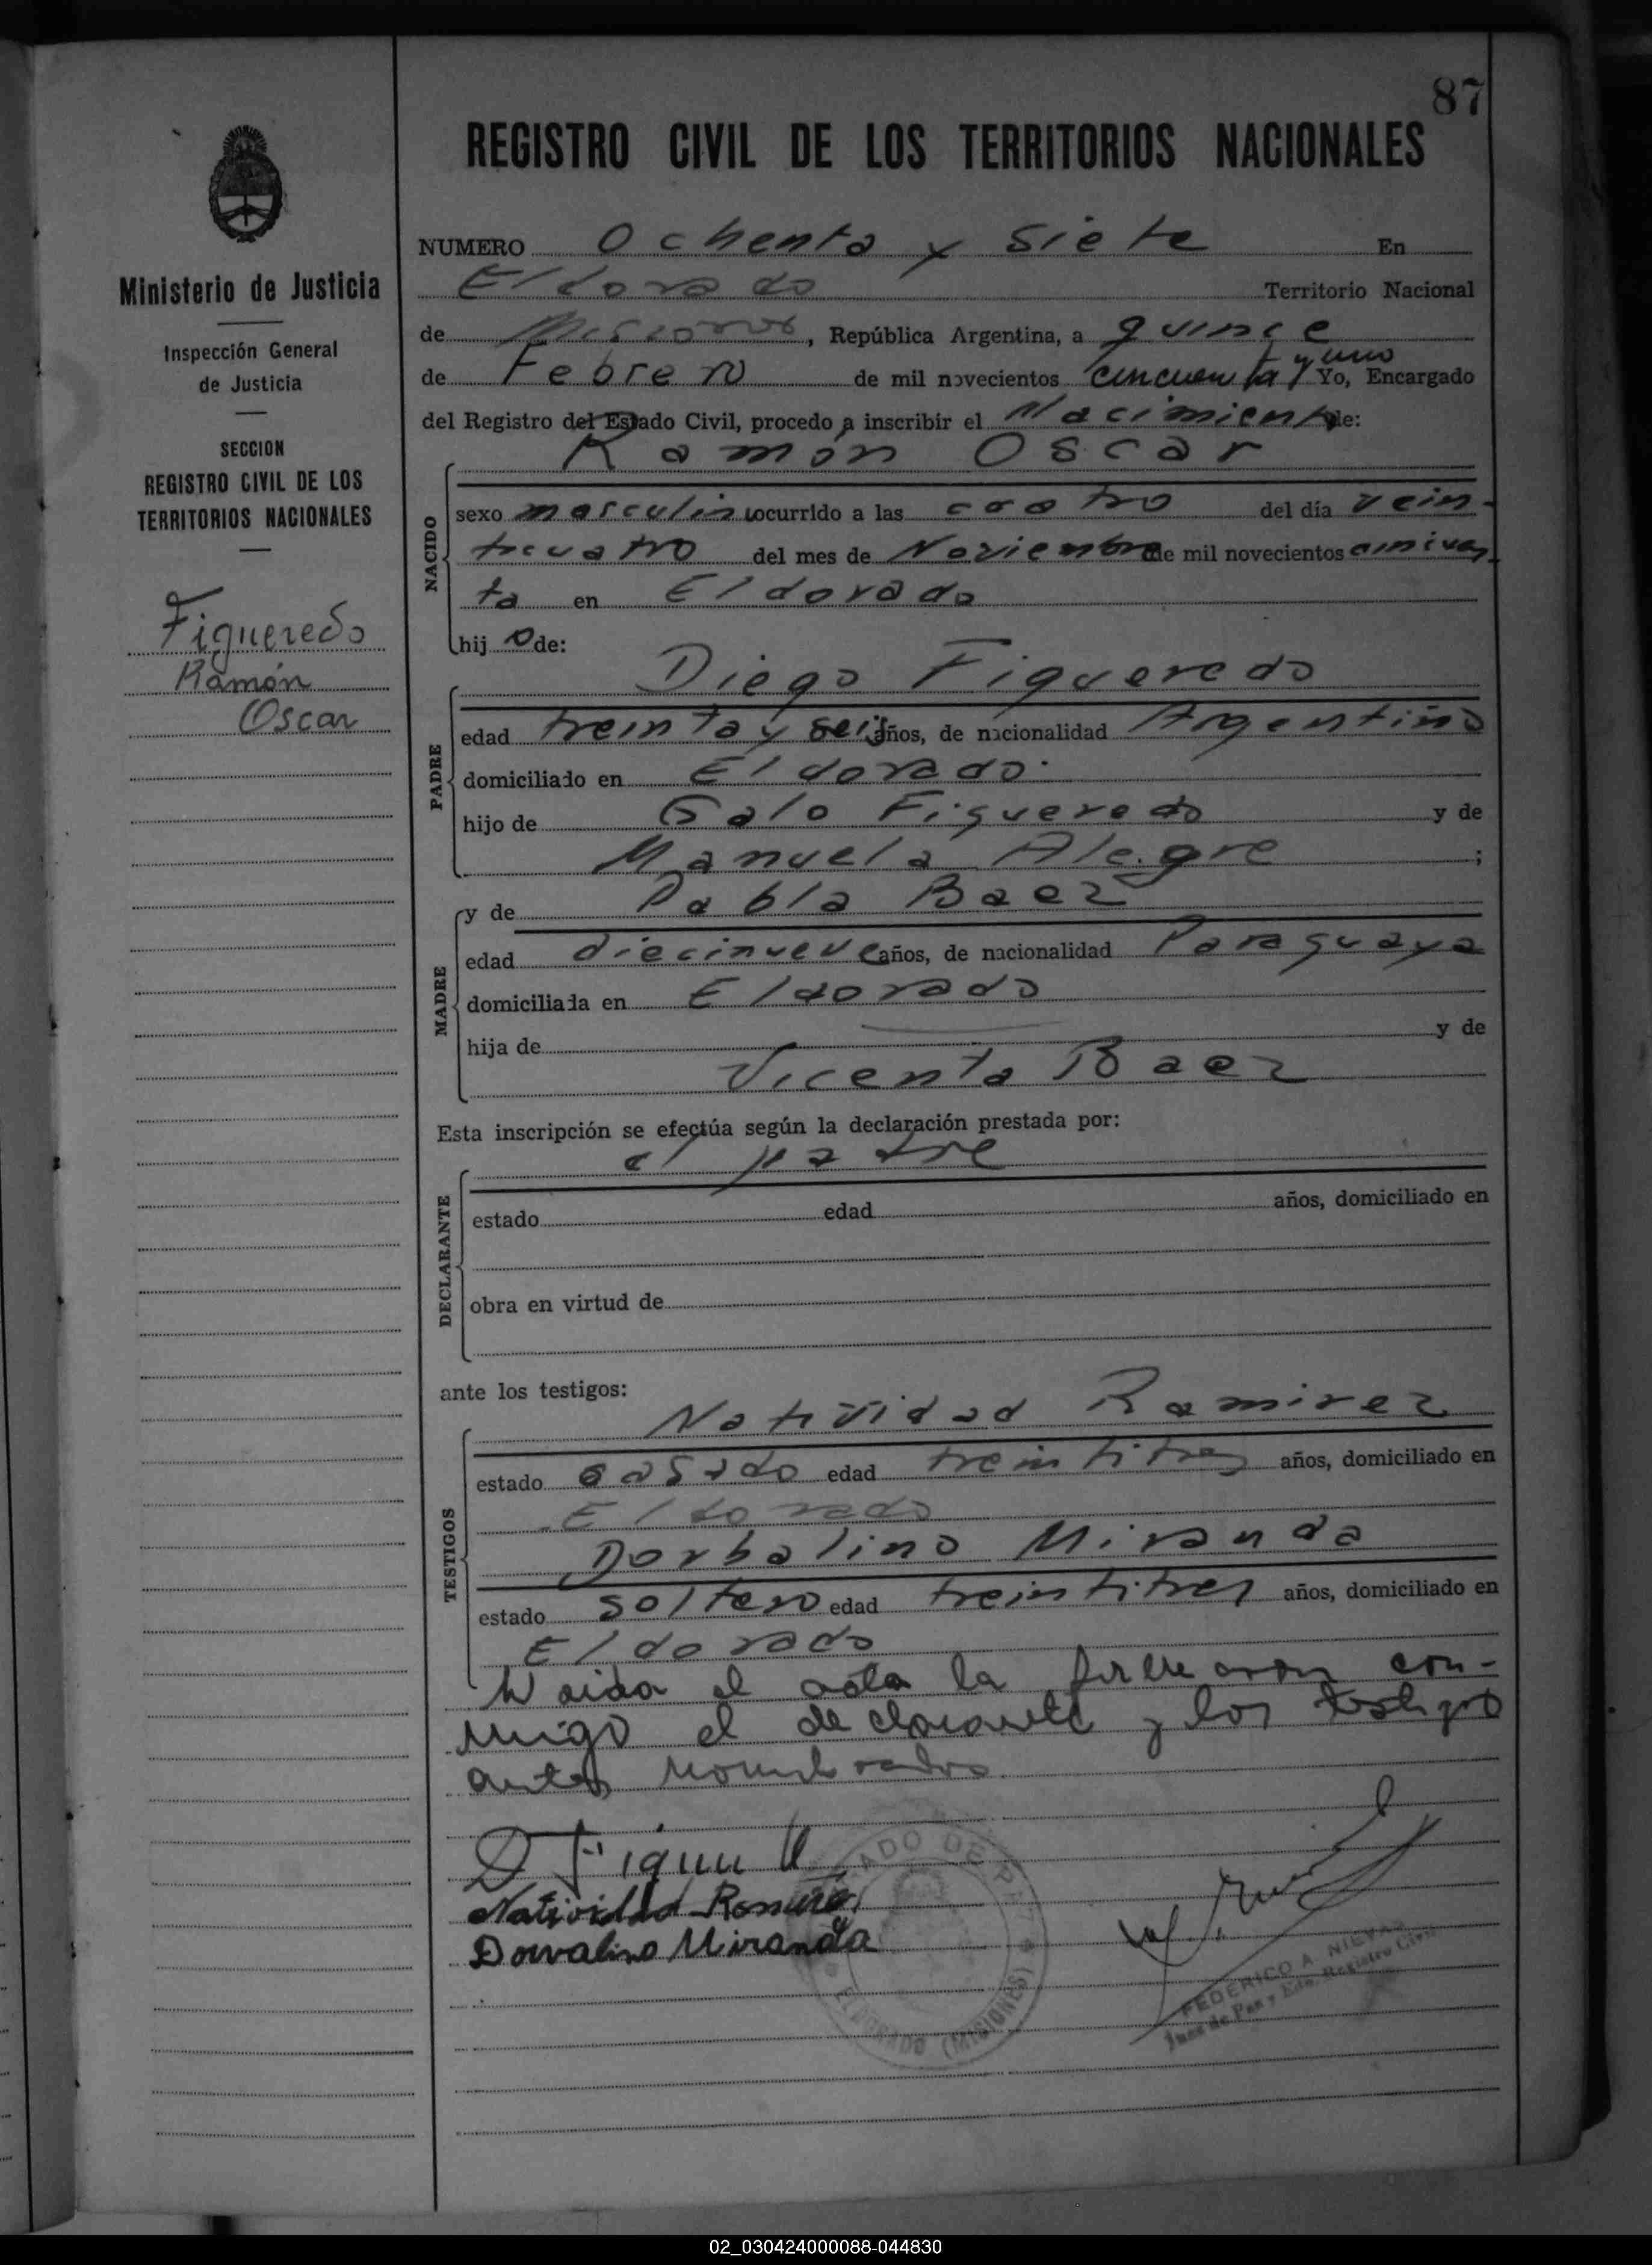 87
REGISTRO CIVIL DE LOS TERRITORIOS NACIONALES
Ministerio de Justicia
Inspección General
de Justicia
SECCION
REGISTRO CIVIL DE LOS
TERRITORIOS NACIONALES
Figueredo
Ramón
Oscar
NUMERO Ochenta y siete En
Eldorado Territorio Nacional
de Misiones, República Argentina, a quince
de Febrero de mil novecientos cincuenta y uno Yo, Encargado
del Registro del Estado Civil, procedo a inscribir el Nacimiento de:
Ramón Oscar
NACIDO
sexo masculino ocurrido a las cuatro del día vein-
ticuatro del mes de Noviembre de mil novecientos cincuen
ta en Eldorado
hij o de:
Diego Figueredo
PADRE
edad treinta y seis años, de nacionalidad Argentino
domiciliado en Eldorado.
hijo de Galo Figueredo y de
Manuela Alegre ;
MADRE
y de Pabla Baez
edad diecinueve años, de nacionalidad Paraguaya
domiciliada en Eldorado
hija de y de
Vicenta Baez
Esta inscripción se efectúa según la declaración prestada por:
el padre
DECLARANTE
estado edad años, domiciliado en
obra en virtud de
ante los testigos:
Natividad Ramirez
TESTIGOS
estado casado edad treintitres años, domiciliado en
Eldorado
Dorbalino Miranda
estado soltero edad treintitres años, domiciliado en
Eldorado
leida el acta la firmaron con-
migo el declarante y los testigos
antes nombrados
D Figue
Natividad Ramirez
Dorvalino Miranda
JUZGADO DE PAZ
ELDORADO (MISIONES)
FEDERICO A. NIEVAS
Juez de Paz y Edo. Registro Civil
02_030424000088-044830